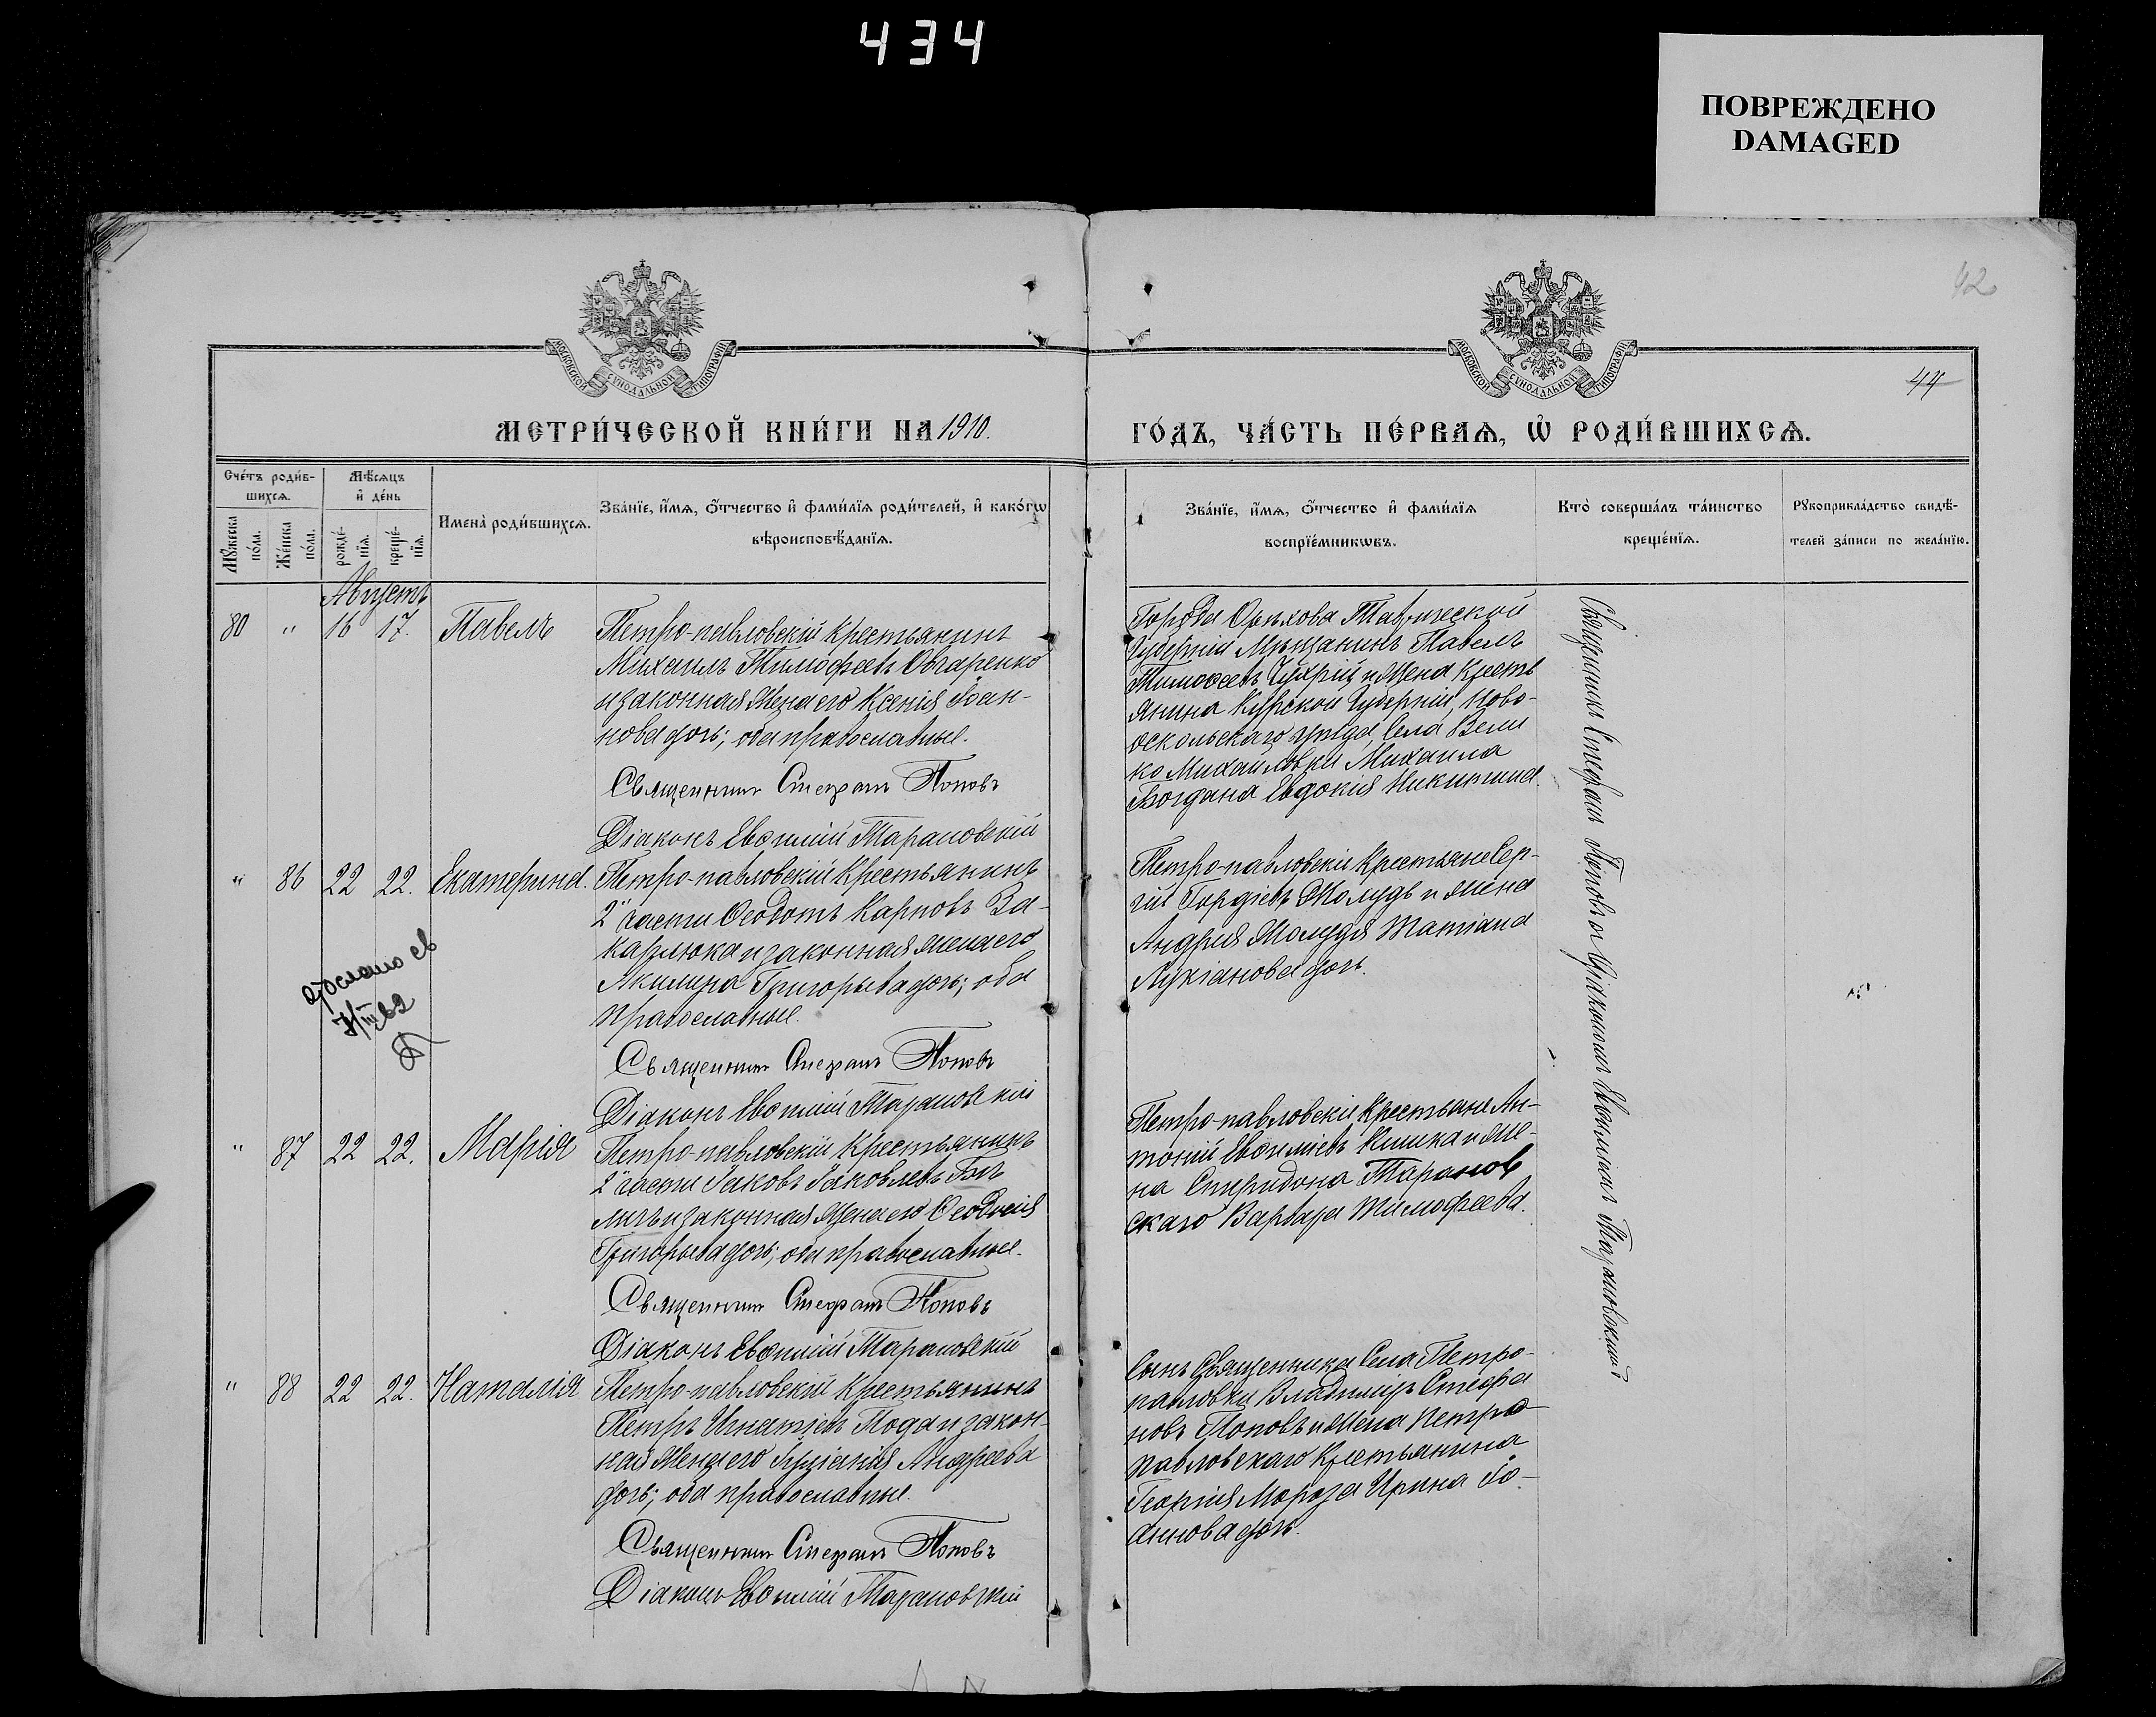 434
ПОВРЕЖДЕНО
DAMAGED
42
44
МОСКОВСКОЙ СѴНОДАЛЬНОЙ ТИПОГРАФІИ
МОСКОВСКОЙ СѴНОДАЛЬНОЙ ТИПОГРАФІИ
МЕТРИ́ЧЕСКОЙ КНИ́ГИ НА 1910.
ГО́ДЪ, ЧА́СТЬ ПЕ́РВАѦ, Ѡ҆ РОДИ́ВШИХСѦ.
Сче́тъ роди́в-
шихсѧ.
Мꙋ́жеска по́ла.
Же́нска по́ла.
Мѣ́сѧцъ
и҆ де́нь
рожде́-
нїѧ.
креще́-
нїѧ.
Имена̀ роди́вшихсѧ.
Зва́нїе, и҆́мѧ, ѻ҆́тчество и҆ фами́лїѧ роди́телей, и҆ како́гѡ
вѣроисповѣ́данїѧ.
Зва́нїе, и҆́мѧ, ѻ҆́тчество и҆ фами́лїѧ
воспрїе́мникѡвъ.
Кто̀ соверша́лъ та́инство
креще́нїѧ.
Рꙋкоприкла́дство свидѣ́-
телей за́писи по жела́нїю.
Августъ
80 " 16 17. Павелъ
Петро-павловскій крестьянинъ
Михаилъ Тимофеевъ Овчаренко
и законная жена его Ксенія Іоан-
нова дочь; оба православные.
Священникъ Стефанъ Поповъ
Діаконъ Евѳимій Тарановскій
Города Орѣхова Таврической
Губерніи Мѣщанинъ Павелъ
Тимоѳеевъ и жена Кресть
янина Курской Губерніи, Ново-
оскольскаго уѣзда, Села Вели
ко Михайловки Михаила
Богдана Евдокія Никитина.
" 86 22 22. Екатерина.
Петро-павловскій Крестьянинъ
2й части Ѳеодотъ Карповъ За-
карлюка и законная жена его
Акилина Григорьева дочь; оба
православные.
Священникъ Стефанъ Поповъ
Діаконъ Евѳимій Тарановскій
Петро-павловскіе Крестьяне Сер-
гій Гордіевъ Жолудь и жена
Андрея Жолудя Татіана
Лукіанова дочь.
" 87 22 22. Марія
Петро-павловскій Крестьянинъ
2й части Іаковъ Іаковлевъ Бѣ
личъ и законная жена его Ѳеодосія
Григорьева дочь; оба православные.
Священникъ Стефанъ Поповъ
Діаконъ Евѳимій Тарановскій
Петро-павловскіе Крестьяне Ан-
тоній Евѳиміевъ Кишка и же-
на Спиридона Таранов
скаго Варвара Тимофеева.
" 88 22 22. Наталія
Петро-павловскій Крестьянинъ
Петръ Игнатіевъ Пода и закон-
ная жена его Андреева
дочь; оба православные.
Священникъ Стефанъ Поповъ
Діаконъ Евѳимій Тарановскій
Сынъ Священника Села Петро-
павловки Владиміръ Стефа
новъ Поповъ и жена Петро-
павловскаго Крестьянина
Георгія Мороза Ирина Іо-
аннова дочь.
Священникъ Стефанъ Поповъ съ Діакономъ Евѳиміемъ Тарановскимъ